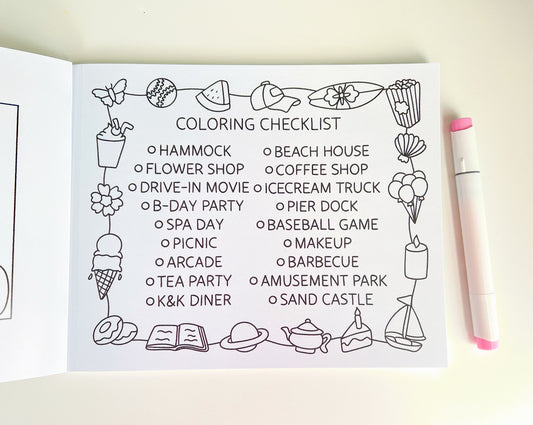 COLORING CHECKLIST
HAMMOCK
FLOWER SHOP
DRIVE-IN MOVIE
B-DAY PARTY
SPA DAY
PICNIC
ARCADE
TEA PARTY
K&K DINER
BEACH HOUSE
COFFEE SHOP
ICECREAM TRUCK
PIER DOCK
BASEBALL GAME
MAKEUP
BARBECUE
AMUSEMENT PARK
SAND CASTLE